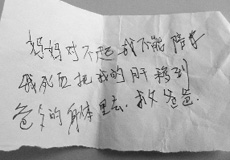 妈妈对不起我不能陪你
我死后把我的肝移到
爸爸的身体里去.救爸爸.